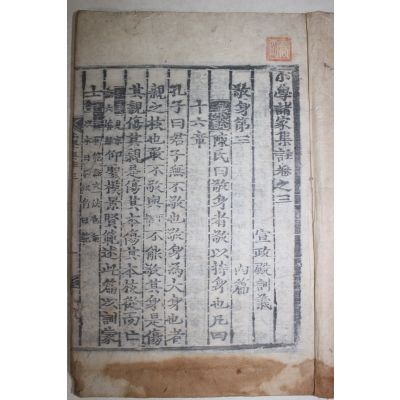 小學諸家集註卷之三
宣政殿訓義
內篇
敬身第三
陳氏曰敬身者敬以持身也凡四
十六章
孔子曰君子無不敬也敬身爲大身也者
親之枝也敢不敬與不能敬其身是傷
其親傷其親是傷其本傷其本枝從而亡
仰聖模景賢範述此篇以訓蒙
士